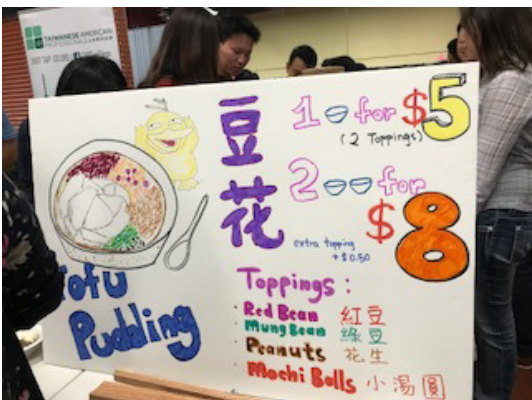 TAIWANESE AMERICAN
PROFESSIONALS
豆花
1 for $5
(2 Toppings)
2 for
$8
extra topping
+$0.50
Tofu
Pudding
Toppings:
· Red Bean 紅豆
· Mung Bean 綠豆
· Peanuts 花生
· Mochi Balls 小湯圓